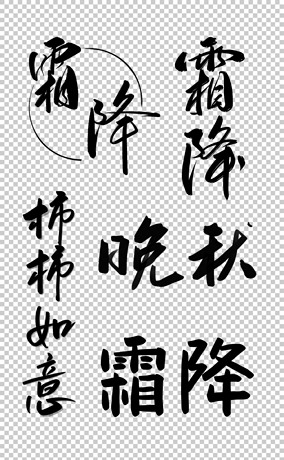 霜降
霜降
柿柿如意
晚秋
霜降